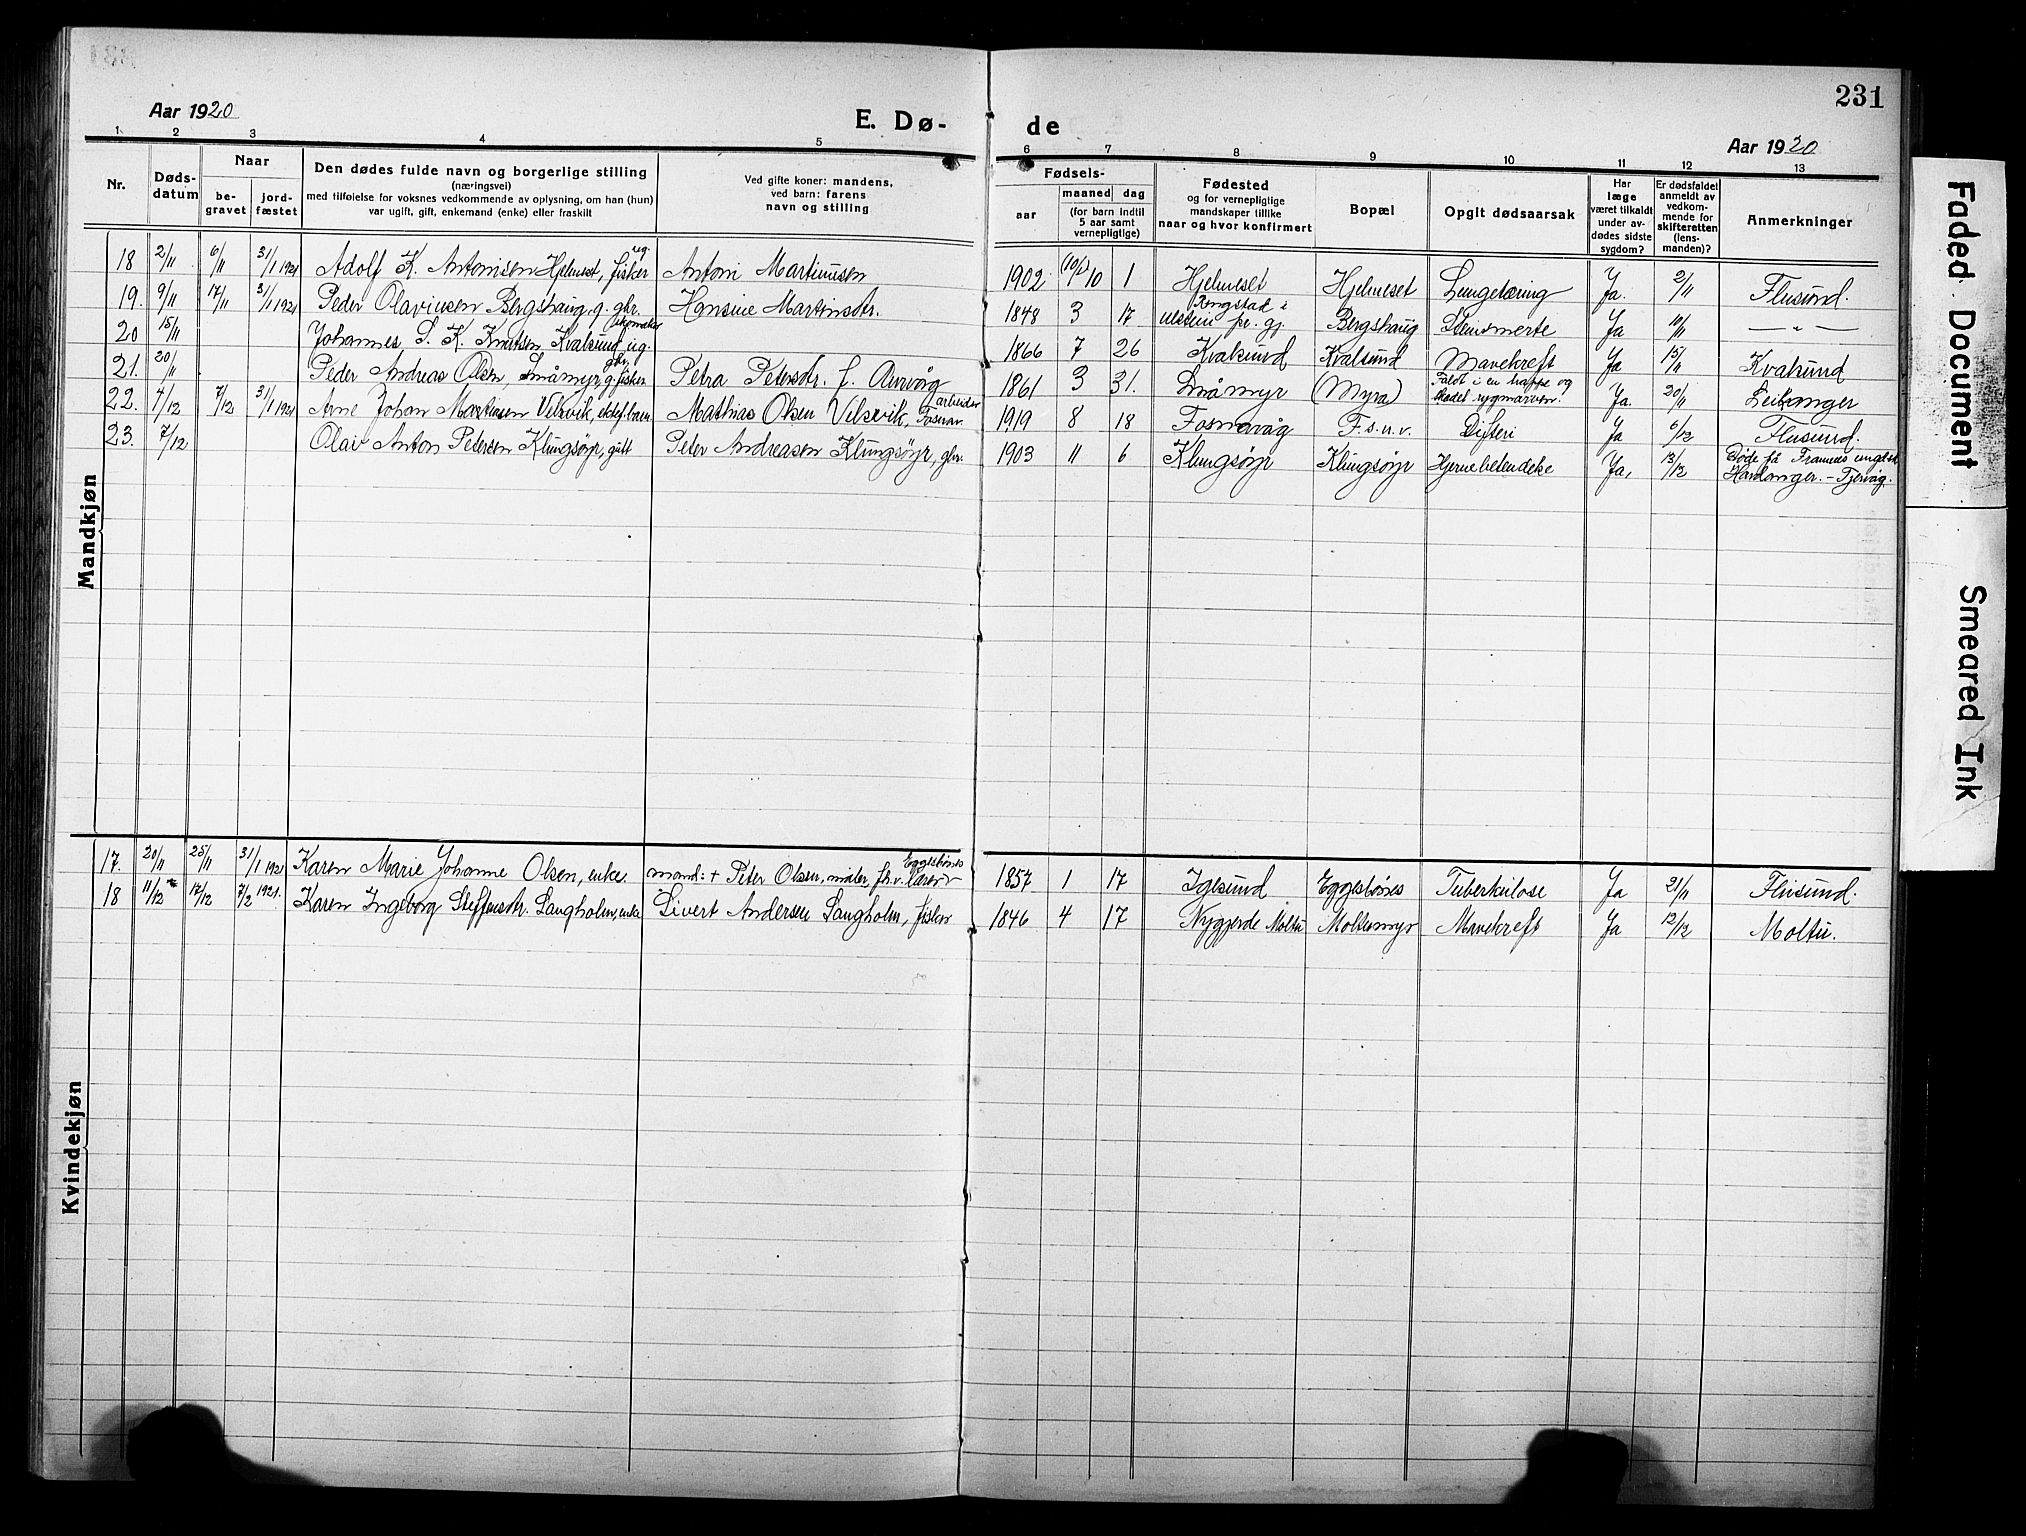 231
Aar 1920
E. Dø- de
Aar 1920
1 2 3 4 5 6 7 8 9 10 11 12 13
Nr.
Døds-
datum
Naar
be-
gravet
jord-
fæstet
Den dødes fulde navn og borgerlige stilling
(næringsvei)
med tilføielse for voksnes vedkommende av oplysning, om han (hun)
var ugift, gift, enkemand (enke) eller fraskilt
Ved gifte koner: mandens,
ved barn: farens
navn og stilling
Fødsels-
aar
maaned dag
(for barn indtil
5 aar samt
vernepligtige)
Fødested
og for vernepligtige
mandskaper tillike
naar og hvor konfirmert
Bopæl
Opgit dødsaarsak
Har
læge
været tilkaldt
under av-
dødes sidste
sygdom?
Er dødsfaldet
anmeldt av
vedkom-
mende for
skifteretten
(lens-
manden)?
Anmerkninger
Mandkjøn
18 2/11 6/11 31/1 1921 Adolf K. Antonsen Hjelmeset, fisker ug. Antoni Martinusen 1902 10 1 Hjelmeset Hjelmeset Lungetæring Ja. 2/11 Flusund.
19. 9/11 17/11 31/1 1921 Peder Olavinsen Bergshaug, g. gbr. Hansine Martinsdtr. 1848 3 17 Ulstein pr. gj. Bergshaug Ja 10/11 — " —
20 15/11 Johannes S. K. Knutsen Kvalsund, ug. 1866 7 26 Kvalsund Kvalsund Mavekreft Ja 15/11 Kvalsund
21. 20/11 Peder Andreas Olsen, Småmyr, g. fisker gbr. Petra Petersdtr. f. 1861 3 31. Småmyr (Myra) Faldt i en trappe og skadet rygmarven. Ja. 20/11 Leikanger
22. 4/12 7/12 31/1 1921 Arne Johan Martinsen Velsvik, ektef. barn Mathias Olsen Velsvik, arbeider Fosnav. 1919 8 18 Fosnavåg F.s.n.v. Difteri Ja 6/12 Flusund.
23. 7/12 Olav Anton Petersen Klungsöyr, gutt Peter Andreasen Klungsöyr, gbr. 1903 11 6 Klungsöyr Klungsöyr Hjernebetendelse Ja, 13/12 Døde på Framnes ungd.sk.
Hardanger. – Tjervåg.
Kvindekjøn
17. 20/11 25/11 31/1 1921 Karen Marie Johanne Olsen, enke. mand: + Peter Olsen, maler, Eggesbönes 1857 1 17 Igesund Eggesbönes Tuberkulose Ja 21/11 Flusund.
18 11/12 17/12 7/2 1921. Karen Ingeborg Steffensdtr. Langholm, enke Sivert Andersen Langholm, fisker 1846 4 17 Nygjerde Moltu Moltumyr Mavekreft Ja 12/12 Moltu.
Faded Document
Smeared Ink